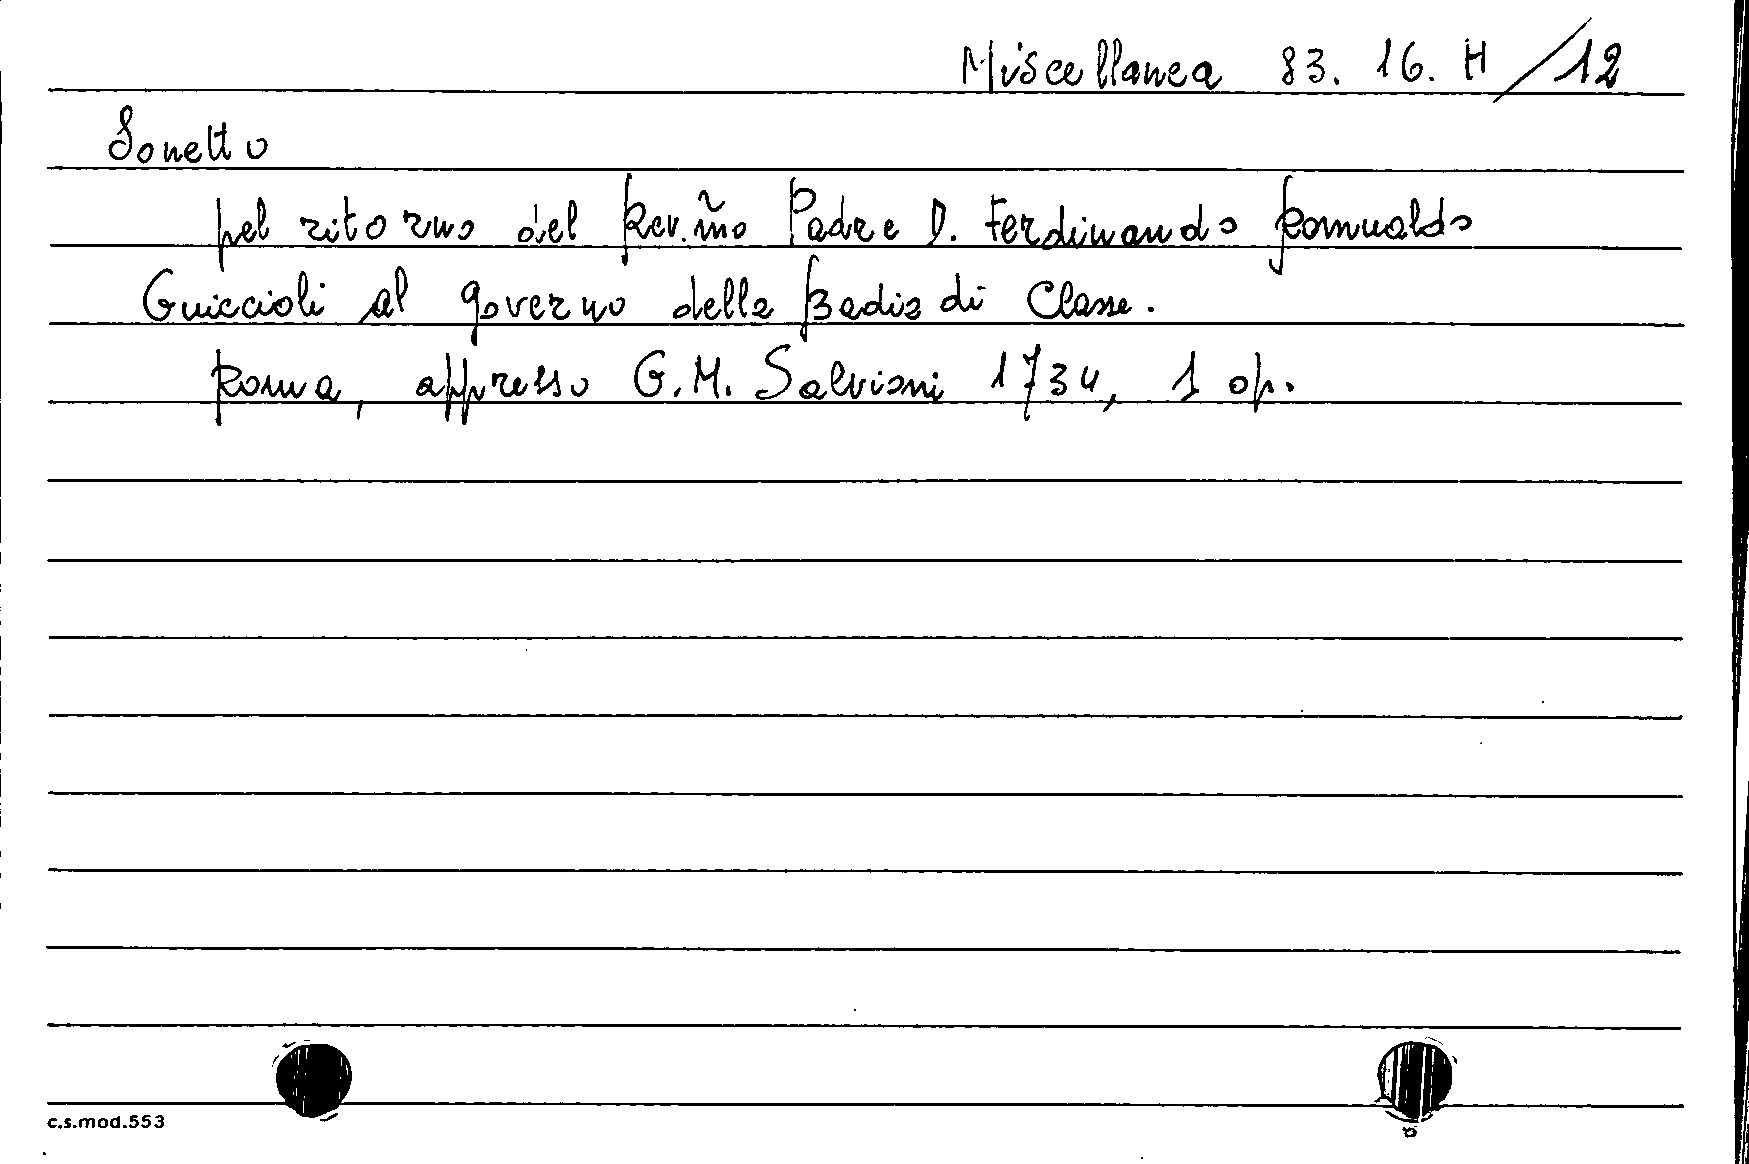 Miscellanea 83. 16. H /12
Sonetto
pel ritorno del Rev.m̃o Padre D. Ferdinando Romualdo
Guiccioli al governo della Badia di Classe.
Roma, appresso G.M. Salvioni 1734, 1 op.
c.s.mod.553